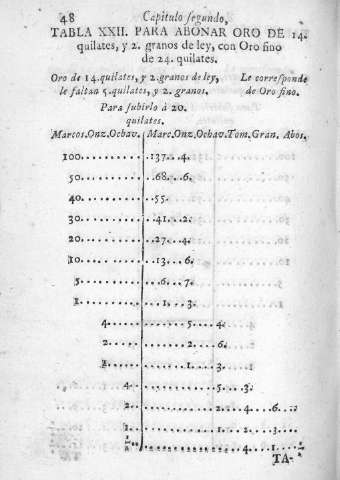 48 Capitulo segundo,
TABLA XXII. PARA ABONAR ORO DE 14.
quilates, y 2. granos de ley, con Oro fino
de 24. quilates.
Oro de 14. quilates, y 2. granos de ley, Le corresponde
le faltan 5. quilates, y 2. granos. de Oro fino.
Para subirlo à 20.
quilates.
Marcos.Onz.Ochav. Marc.Onz.Ochav.Tom.Gran. Abos.
100..........137...4.
50..........68...6.
40..........55.
30..........41...2.
20..........27...4.
10..........13...6.
5..........6...7.
1..........1...3.
4..........5...4.
2..........2...6.
1..........1...3.
4..........5...3.
2..........2...4...6...
1..........1...2...3...
1/2..........4...1...1/2
TA-